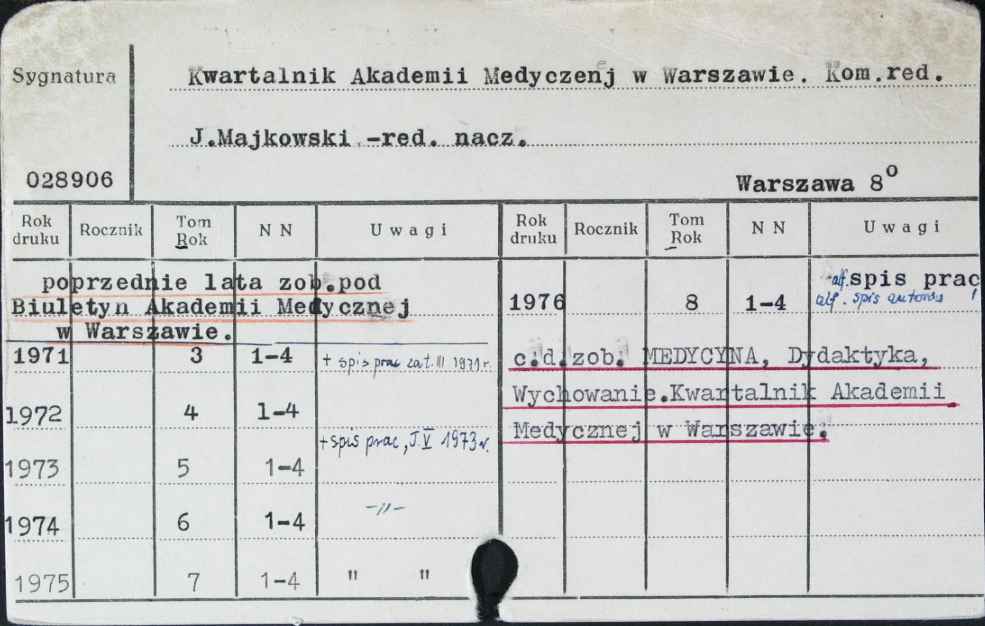 Sygnatura
Kwartalnik Akademii Medyczenj w Warszawie. Kom.red.
J.Majkowski -red. nacz.
028906
Warszawa 8°
Rok druku Rocznik Tom Rok NN Uwagi
poprzednie lata zob.pod
Biuletyn Akademii Medycznej
w Warszawie.
1971 3 1-4 + spis prac za t. III 1971 r.
1972 4 1-4
1973 5 1-4 + spis prac, T.V 1973 r.
1974 6 1-4 -"-
1975 7 1-4 " "
Rok druku Rocznik Tom Rok NN Uwagi
alf. spis prac
1976 8 1-4 alf. spis autorów
c.d.zob. MEDYCYNA, Dydaktyka,
Wychowanie.Kwartalnik Akademii
Medycznej w Warszawie.